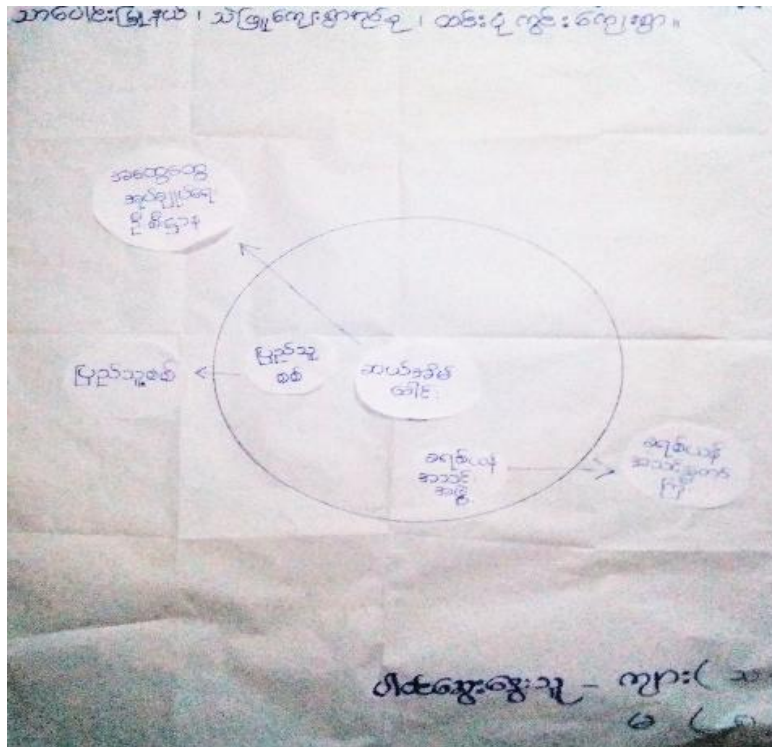 သာပေါင်းမြို့နယ်၊ သဲဖြူကျေးရွာအုပ်စု၊ ထင်းပုံကွင်းကျေးရွာ။
အထွေထွေ
အုပ်ချုပ်ရေး
ဦးစီးဌာန
ပြည်သူ့စစ်
ပြည်သူ့
စစ်
ဆယ်အိမ်
ခေါင်း
ခရစ်ယာန်
အသင်း
အဖွဲ့
ခရစ်ယာန်
အသင်းချုပ်
ကြီး
ပါဝင်ဆွေးနွေးသူ - ကျား (
မ (